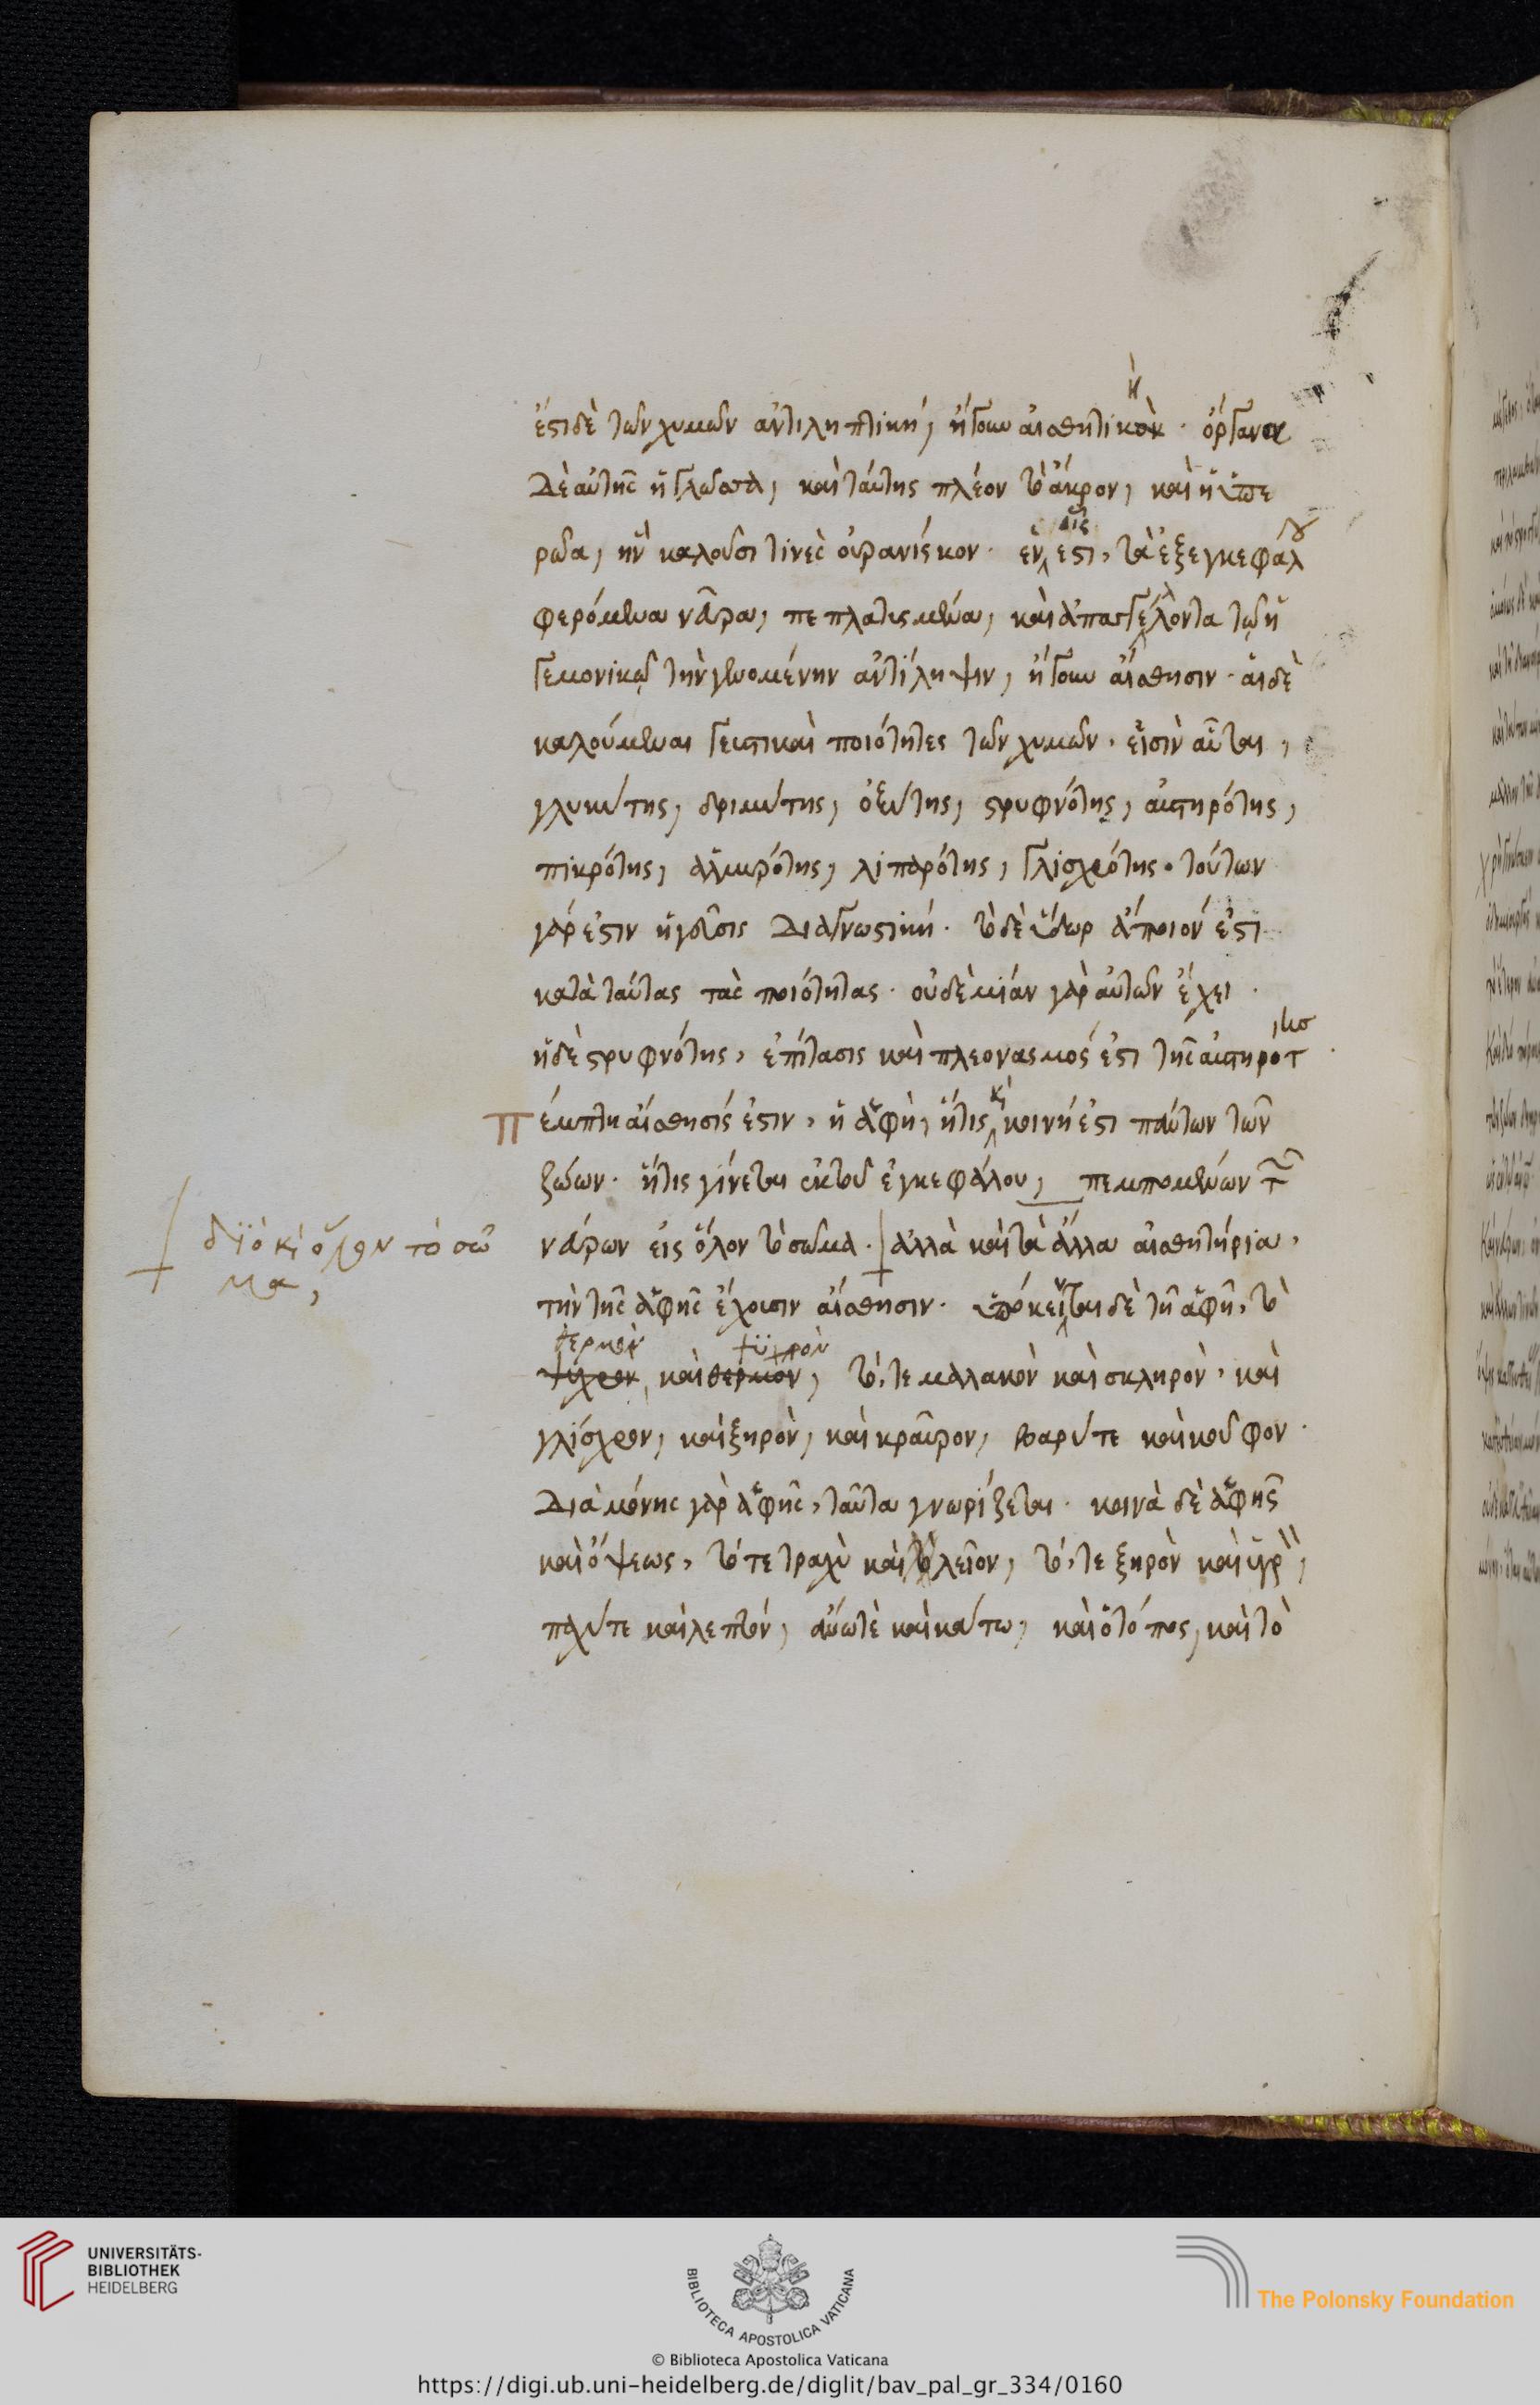 ἐστι δὲ τῶν χυμῶν ἀντιληπτική, ἤγουν αἰσθητικὸν. ὄργανα
δὲ αὐτῆς ἡ γλῶσσα, καὶ ταύτης πλέον τὸ ἄκρον, καὶ ἡ ὑπε
ρῶα, ἣν καλοῦσί τινες οὐρανίσκον. ἐν αἷς ἐστι, τὰ ἐξ ἐγκεφάλου
φερόμενα νεῦρα, πεπλατυσμένα, καὶ ἀπαγγέλλοντα τῷ ἡ
γεμονικῷ τὴν γενομένην ἀντίληψιν, ἤγουν αἴσθησιν. αἱ δὲ
καλούμεναι γευστικαὶ ποιότητες τῶν χυμῶν, εἰσὶν αὗται,
γλυκύτης, δριμύτης, ὀξύτης, στρυφνότης, αὐστηρότης,
πικρότης, ἁλμυρότης, λιπαρότης, γλισχρότης. τούτων
γάρ ἐστιν ἡ γεῦσις διαγνωστική. τὸ δὲ ὕδωρ ἄποιόν ἐστι
κατὰ ταύτας τὰς ποιότητας. οὐδὲ μίαν γὰρ αὐτῶν ἔχει.
ἡ δὲ στρυφνότης, ἐπίτασις καὶ πλεονασμός ἐστι τῆς αὐστηρότητος.
Πέμπτη αἴσθησίς ἐστιν, ἡ ἁφή, ἥτις καὶ κοινή ἐστι πάντων τῶν
ζώων. ἥτις γίνεται ἐκ τοῦ ἐγκεφάλου, πεμπομένων τῶν
νεύρων εἰς ὅλον τὸ σῶμα. ἀλλὰ καὶ τὰ ἄλλα αἰσθητήρια,
διὸ κ ὅλον τὸ σῶ
μα,
τὴν τῆς ἁφῆς ἔχουσιν αἴσθησιν. ὑπόκεινται δὲ τῇ ἁφῇ, τὸ
θερμὸν ψυχρὸν
ψυχρὸν καὶ θερμὸν, τό, τε μαλακὸν καὶ σκληρὸν, καὶ
γλίσχρον, καὶ ξηρὸν, καὶ κραῦρον, βαρύ τε καὶ κοῦφον.
διὰ μόνης γὰρ ἁφῆς, ταῦτα γνωρίζεται. κοινὰ δὲ ἁφῆς
καὶ ὄψεως, τό τε τραχὺ καὶ λεῖον, τό, τε ξηρὸν καὶ ὑγρὸν,
παχύ τε καὶ λεπτόν, ἄνω τὲ καὶ κάτω, καὶ ὁ τόπος, καὶ τὸ
UNIVERSITÄTS-
BIBLIOTHEK
HEIDELBERG
BIBLIOTECA APOSTOLICA VATICANA
The Polonsky Foundation
© Biblioteca Apostolica Vaticana
https://digi.ub.uni-heidelberg.de/diglit/bav_pal_gr_334/0160